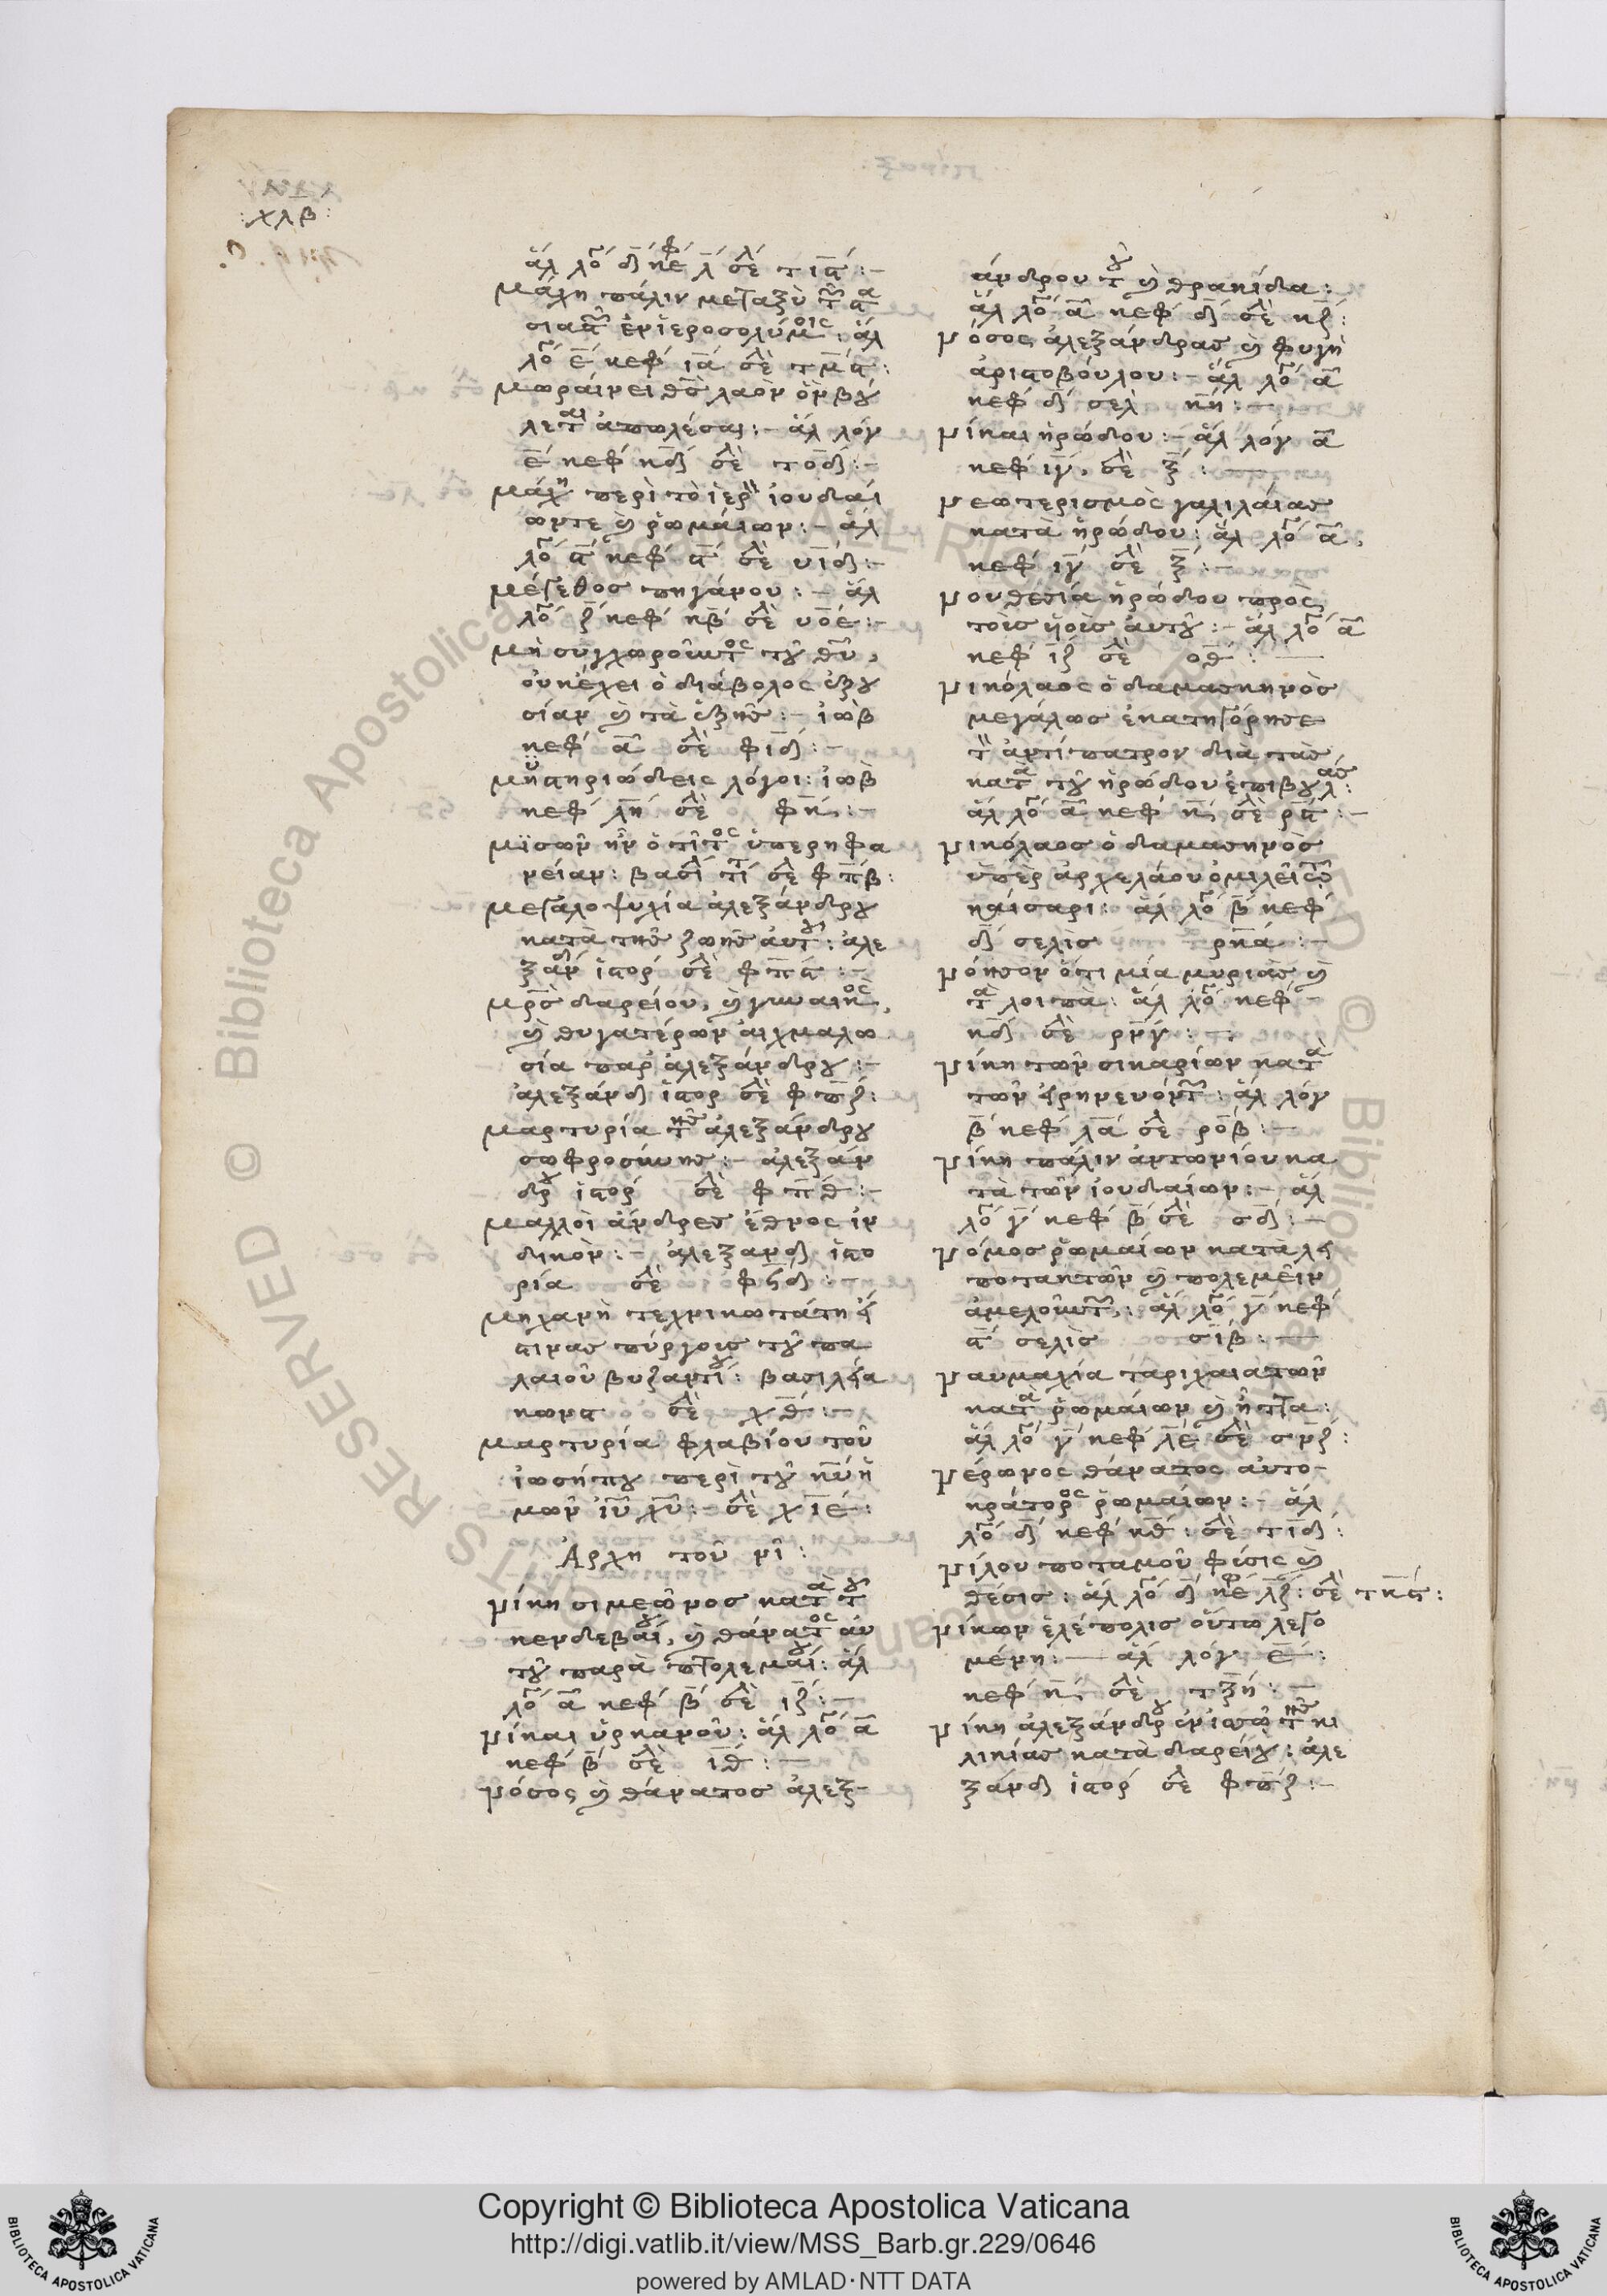 :χλβ:
ἅλ λογ δ κεφ λ σελ τιϛ:-
μάχη πάλιν μεταξὺ τῶν στα
σιαστῶν ἐν ἱεροσολύμοις: ἅλ
λογ ε κεφ ια σελ τμϛ:
μωραίνει θς λαὸν ὃν βού
λεται ἀπολέσαι:- ἅλ λόγ
ε κεφ κδ σελ τοδ:-
μάχη περὶ τὸ ἱερὸν ἰουδαί
ων τε καὶ ῥωμαίων:- ἅλ
λογ ϛ κεφ ϛ σελ υιδ:-
μέγεθος πηγάνου:- ἅλ
λογ ζ κεφ κβ σελ υοε:-
μὴ συγχωροῦντος τοῦ θυ,
οὐκ ἔχει ὁ διάβολος ἐξου
σίαν καὶ τὰ ἑξῆς:- ἰὼβ
κεφ α σελ φιδ:-
μυστηριώδεις λόγοι: ἰωβ
κεφ λη σελ φκ:-
μισῶν ἦν ὁ τίτος ὑπερηφα
νείαν: βασι τι σελ φπβ:
μεγαλοψυχία ἀλεξάνδρου
κατὰ τῆς ζωῆς αὐτοῦ: ἀλε
ξαν ἱστορ σελ φπϛ:-
μρς δαρείου, καὶ γυναικὸς,
καὶ θυγατέρων αἰχμαλω
σία παρ ἀλεξάνδρου:-
ἀλεξάνδ ἱστορ σελ φπζ:
μαρτυρία τῆς ἀλεξάνδρου
σωφροσύνης:- ἀλεξάν
δρου ἱστορ σελ φπθ:-
μαλλοὶ ἄνδρες ἔθνος ἰν
δικὸν:- ἀλεξανδ ἱστο
ρία σελ φϟδ:-
μηχανὴ τεχνικωτάτη εἰ
στινας πύργοις τοῦ πα
λαιοῦ βυζαντίου: βασιλεία
κωνσ σελ χθ:-
μαρτυρία φλαβίου τοῦ
ἰωσήπου περὶ τοῦ κυ ἡ
μῶν ιυ χυ:- σελ χιε:
Ἀρχη τοῦ νῖ:
νίκη σιμεῶνος κατὰ τοῦ
κενδεβαίου, καὶ θάνατος αὐ
τοῦ παρὰ πτολεμαίου: ἅλ
λογ α κεφ β σελ ιζ:-
νίκαι ὑρκανοῦ: ἅλ λογ α
κεφ β σελ ιθ:-
νόσος καὶ θάνατος ἀλεξ-
άνδρου τοῦ καὶ θρακίδα:
ἅλ λογ α κεφ δ σελ κζ:
νόσος ἀλεξάνδρας καὶ φυγὴ
ἀριστοβούλου:- ἅλ λογ α
κεφ δ σελ κη:-
νίκαι ἡρώδου:- ἅλ λόγ α
κεφ ιγ, σελ ξ:-
νεωτερισμὸς γαλιλαίας
κατὰ ἡρώδου: ἅλ λογ α,
κεφ ιγ σελ ξ:-
νουθεσία ἡρώδου πρὸς
τοὺς υἱοὺς αὐτοῦ:- ἅλ λογ α
κεφ ιζ σελ οθ:-
νικόλαος ὁ δαμασκηνὸς
μεγάλως ἐκατηγόρησε
τὸν ἀντίπατρον διὰ τὰς
κατὰ τοῦ ἡρώδου ἐπιβουλάς:
ἅλ λογ α κεφ κ, σελ ρϛ:-
νικόλαος ὁ δαμασκηνὸς
ὑπὲρ ἀρχελάου ὁμιλεῖ τῶ
καίσαρι: ἅλ λογ β κεφ
δ σελὶς ρκα:-
νόησον ὅτι μία μυριὰς καὶ
τὰ λοιπὰ: ἅλ λογ κεφ-
κδ σελ ρνγ:-
νίκη τῶν σικαρίων κατὰ
τῶν εἰρηνευόντων: ἅλ λόγ
β κεφ λα σελ ροβ:-
νίκη πάλιν ἀντωνίου κα
τὰ τῶν ἰουδαίων:- ἅλ
λογ γ κεφ β σελ σδ:-
νόμος ῥωμαίων κατὰ λει
ποτακτῶν καὶ πολεμεῖν
ἀμελούντων: ἅλ λογ γ κεφ
ϛ σελὶς σιβ:-
ναυμαχία ταριχαιατῶν
κατὰ ῥωμαίων καὶ ἧττα:
ἅλ λογ γ κεφ λε σελ σνζ:
νέρωνος θάνατος αὐτο-
κράτορος ῥωμαίων:- ἅλ
λογ δ κεφ κθ: σελ τιδ:
νίλου ποταμοῦ φύσις καὶ
θέσις: ἅλ λογ δ κεφ λζ: σελ τκϛ:
νίκων ἑλέπολις οὕτω λεγο
μένη:- ἅλ λόγ ε:
κεφ κ, σελ τξη:-
νίκη ἀλεξάνδρου ἐν ἰσσῶ τῆς κι
λικίας κατὰ δαρείου: ἀλε
ξάνδ ἱστορ σελ φπζ:-
Copyright © Biblioteca Apostolica Vaticana
http://digi.vatlib.it/view/MSS_Barb.gr.229/0646
powered by AMLAD·NTT DATA